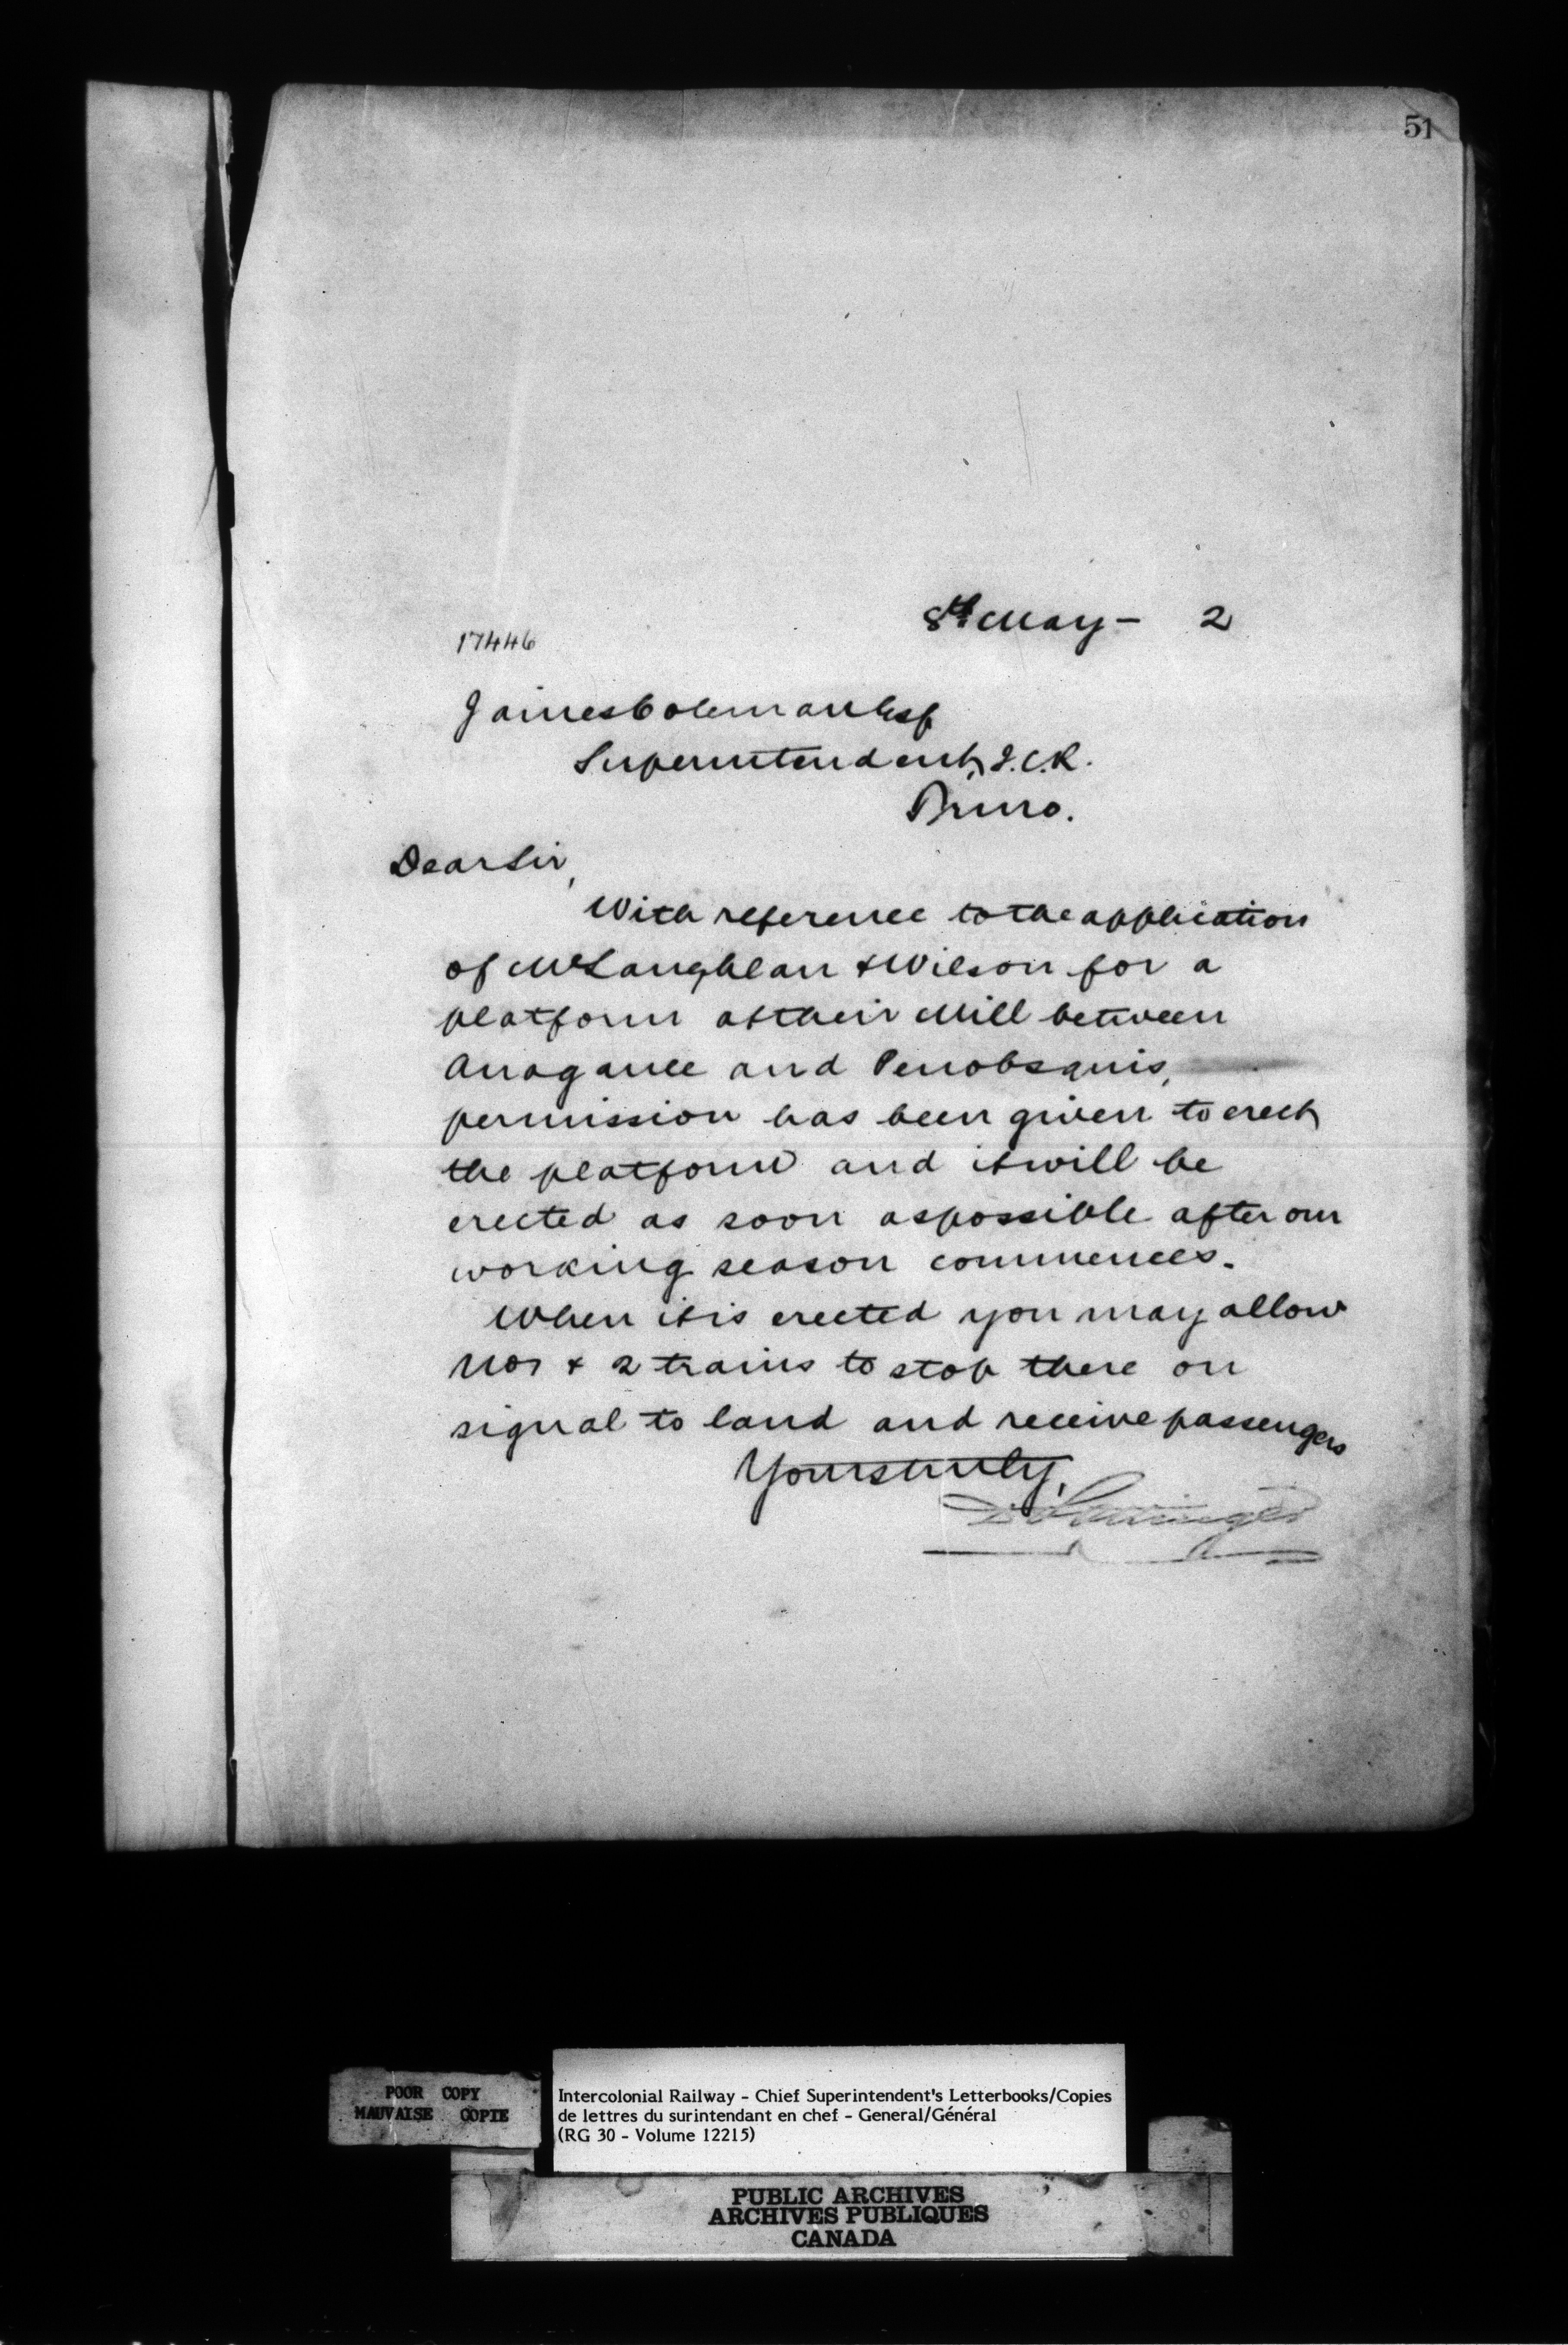 51
8th May - 2
17446
James Coleman Esq
Superintendent, I.C.R.
Truro.
Dear Sir,
With reference to the application
of McLaughlan & Wilson for a
platform at their Mill between
Anagance and Penobsquis,
permission has been given to erect
the platform and it will be
erected as soon as possible after our
working season commences.
When it is erected you may allow
Nos & 2 trains to stop there on
signal to land and receive passengers
Yours truly,
D Pottinger
POOR COPY
MAUVAISE COPIE
Intercolonial Railway - Chief Superintendent's Letterbooks/Copies
de lettres du surintendant en chef - General/Général
(RG 30 - Volume 12215)
PUBLIC ARCHIVES
ARCHIVES PUBLIQUES
CANADA